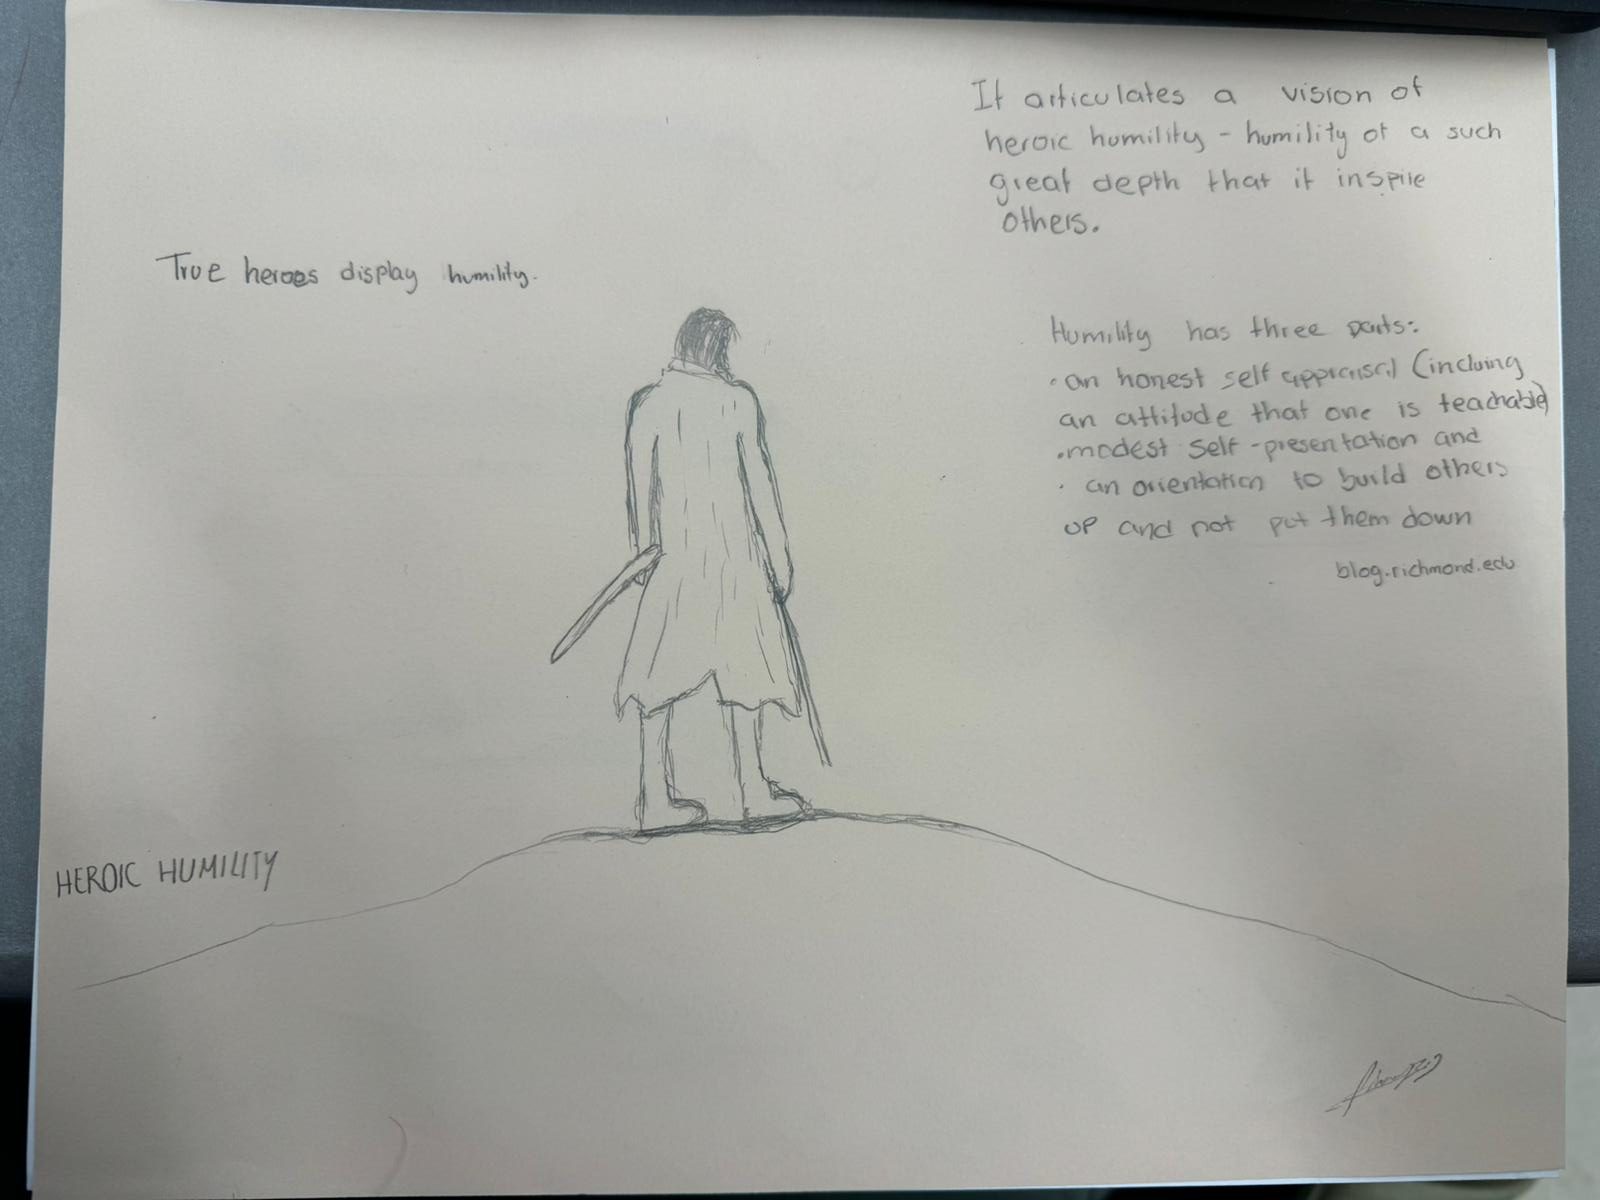 It articulates a vision of
heroic humility - humility of a such
great depth that it inspire
others.
True heroes display humility.
Humility has three parts:
· an honest self appraisal (incluing
an attitude that one is teachable)
· modest self-presentation and
· an orientation to build others
up and not put them down
blog.richmond.edu
HEROIC HUMILITY